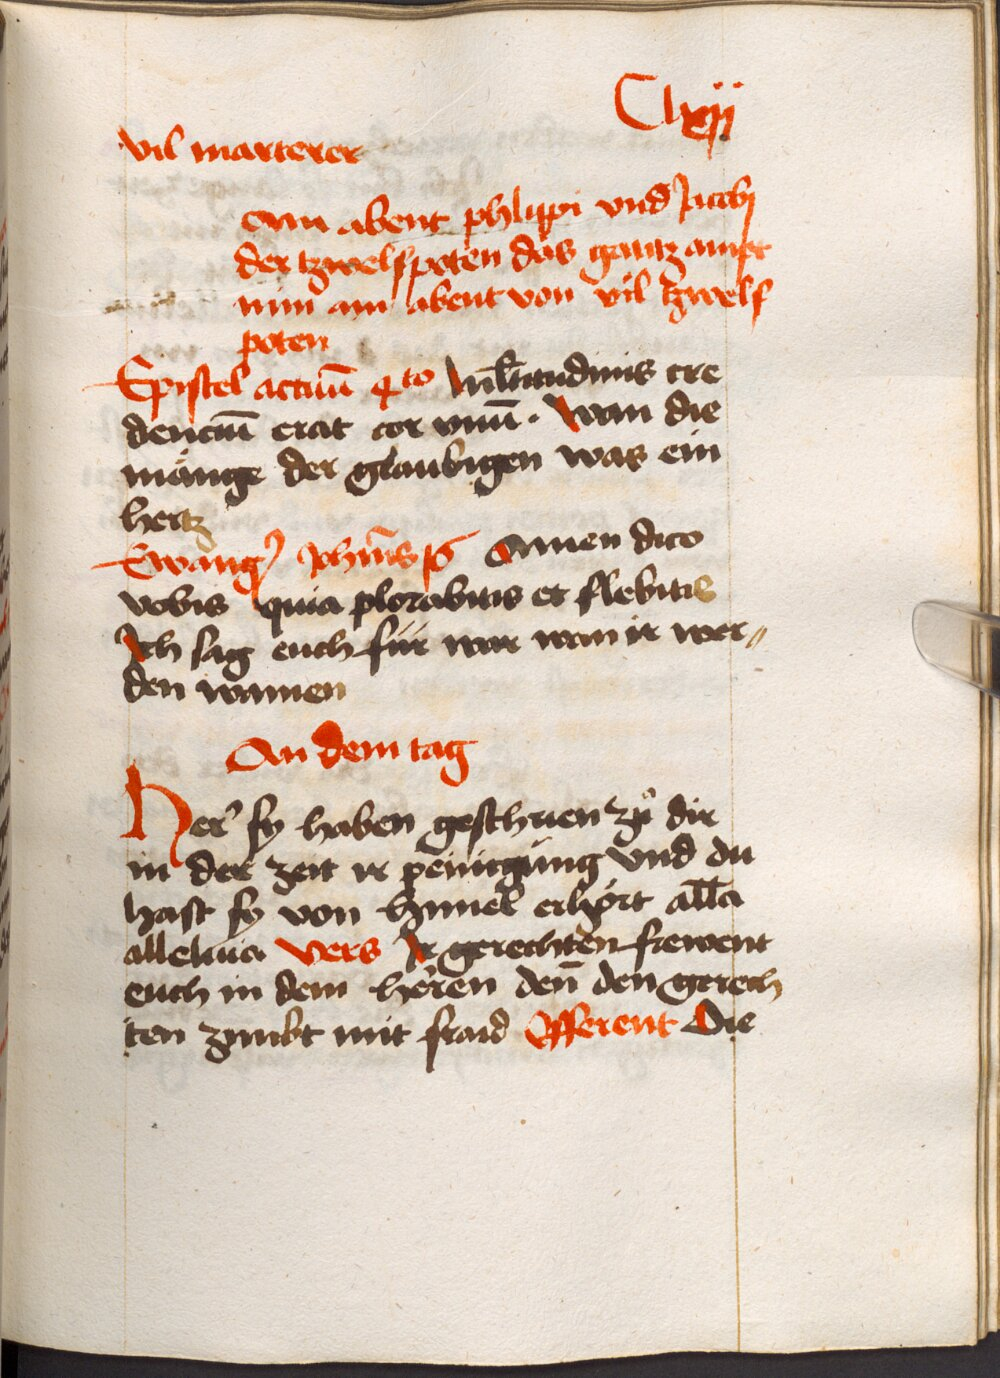 Clxij
vil marterer
Am abent phlippi vnd Jacobi
der tzwelfpoten das gantz ampt
nim am abent von vil tzwelf
poten
Epistel actuū 4to Mltitudinis cre
denciū erat cor vnū. Wan die
mänge der glaubigen was ein
hertz
Ewang Johīs 16 Amen dico
vobis quia plorabitis et flebitis
Ich sag euch für war wan ir wer„
den wainen
An dem tag
Her sy haben geschrien zů dir
in der zeit ir peinigung vnd du
hast sy von himel erhört alla
alleluia Vers Ir gerechten frewent
euch in dem heren den̄ den gerech
ten zimbt mit fraid Offerent Die